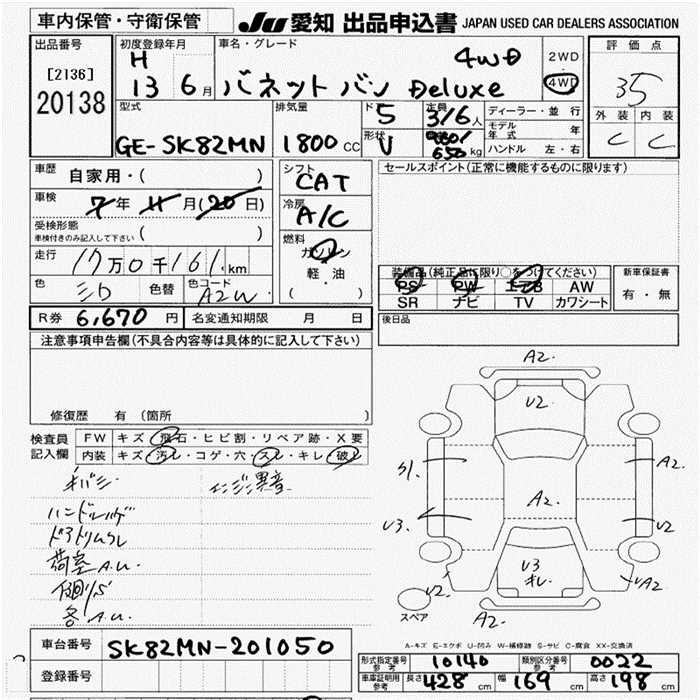 車内保管・守衛保管 JU 愛知 出品申込書 JAPAN USED CAR DEALERS ASSOCIATION
出品番号 [2136] 20138
初度登録年月 H 13 6月
車名・グレード バネットバン Deluxe 4WD
2WD・4WD
評価点 35
外装 内装 C C
型式 GE-SK82MN
排気量 1800cc
ドア 5
定員 3/6人
形状 V
650kg
ディーラー・並行
モデル年式 年
ハンドル 左・右
車歴 自家用・( )
車検 7年 11月(20日)
受検形態 ( )
車検付きのみ記入して下さい
走行 17万0千161km
色 シロ 色替 色コード A2W
シフト CAT
冷房 A/C
燃料 ガソリン
軽・油
( )
セールスポイント(正常に機能するものに限ります)
装備品(純正品に限り○をつけてください)
PS PW エアB AW
SR ナビ TV カワシート
新車保証書
有・無
R券 6,670円 名変通知期限 月 日
後日品
注意事項申告欄(不具合内容等は具体的に記入して下さい)
修復歴 有(箇所 )
検査員記入欄
FW キズ・飛石・ヒビ割・リペア跡・X要
内装 キズ・汚レ・コゲ・穴・スレ・キレ・破レ
エンジン異音
ハンドルハゲ
荷室A.U.
各A.U.
A2.
U2.
S1.
A2.
A2.
U3.
U2
U3
キレ
U2.
UA2
A2.
スペア
A-キズ E-エクボ U-凹み W-補修跡 S-サビ C-腐食 XX-交換済
車台番号 SK82MN-201050
登録番号
型式指定番号参考 10140 類別区分番号参考 0022
車庫証明用参考 長さ 428cm 幅 169cm 高さ 198cm